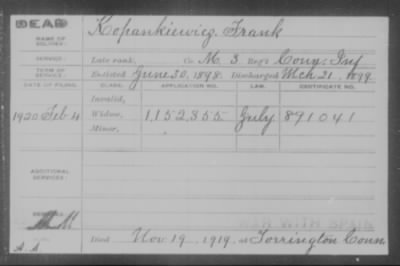 DEAD
NAME OF SOLDIER: Kopankiewicz, Frank
SERVICE: Late rank, Co. M. 3. Reg't Conn. Inf
TERM OF SERVICE: Enlisted June 30, 1898. Discharged Mch 21, 1899
DATE OF FILING. CLASS. APPLICATION NO. LAW. CERTIFICATE NO.
Invalid,
1920 Feb 4 Widow, 1,152,355 July 891041
Minor,
ADDITIONAL SERVICES:
WAR WITH SPAIN
Died Nov. 19, 1919, at Torrington Conn
A. A.